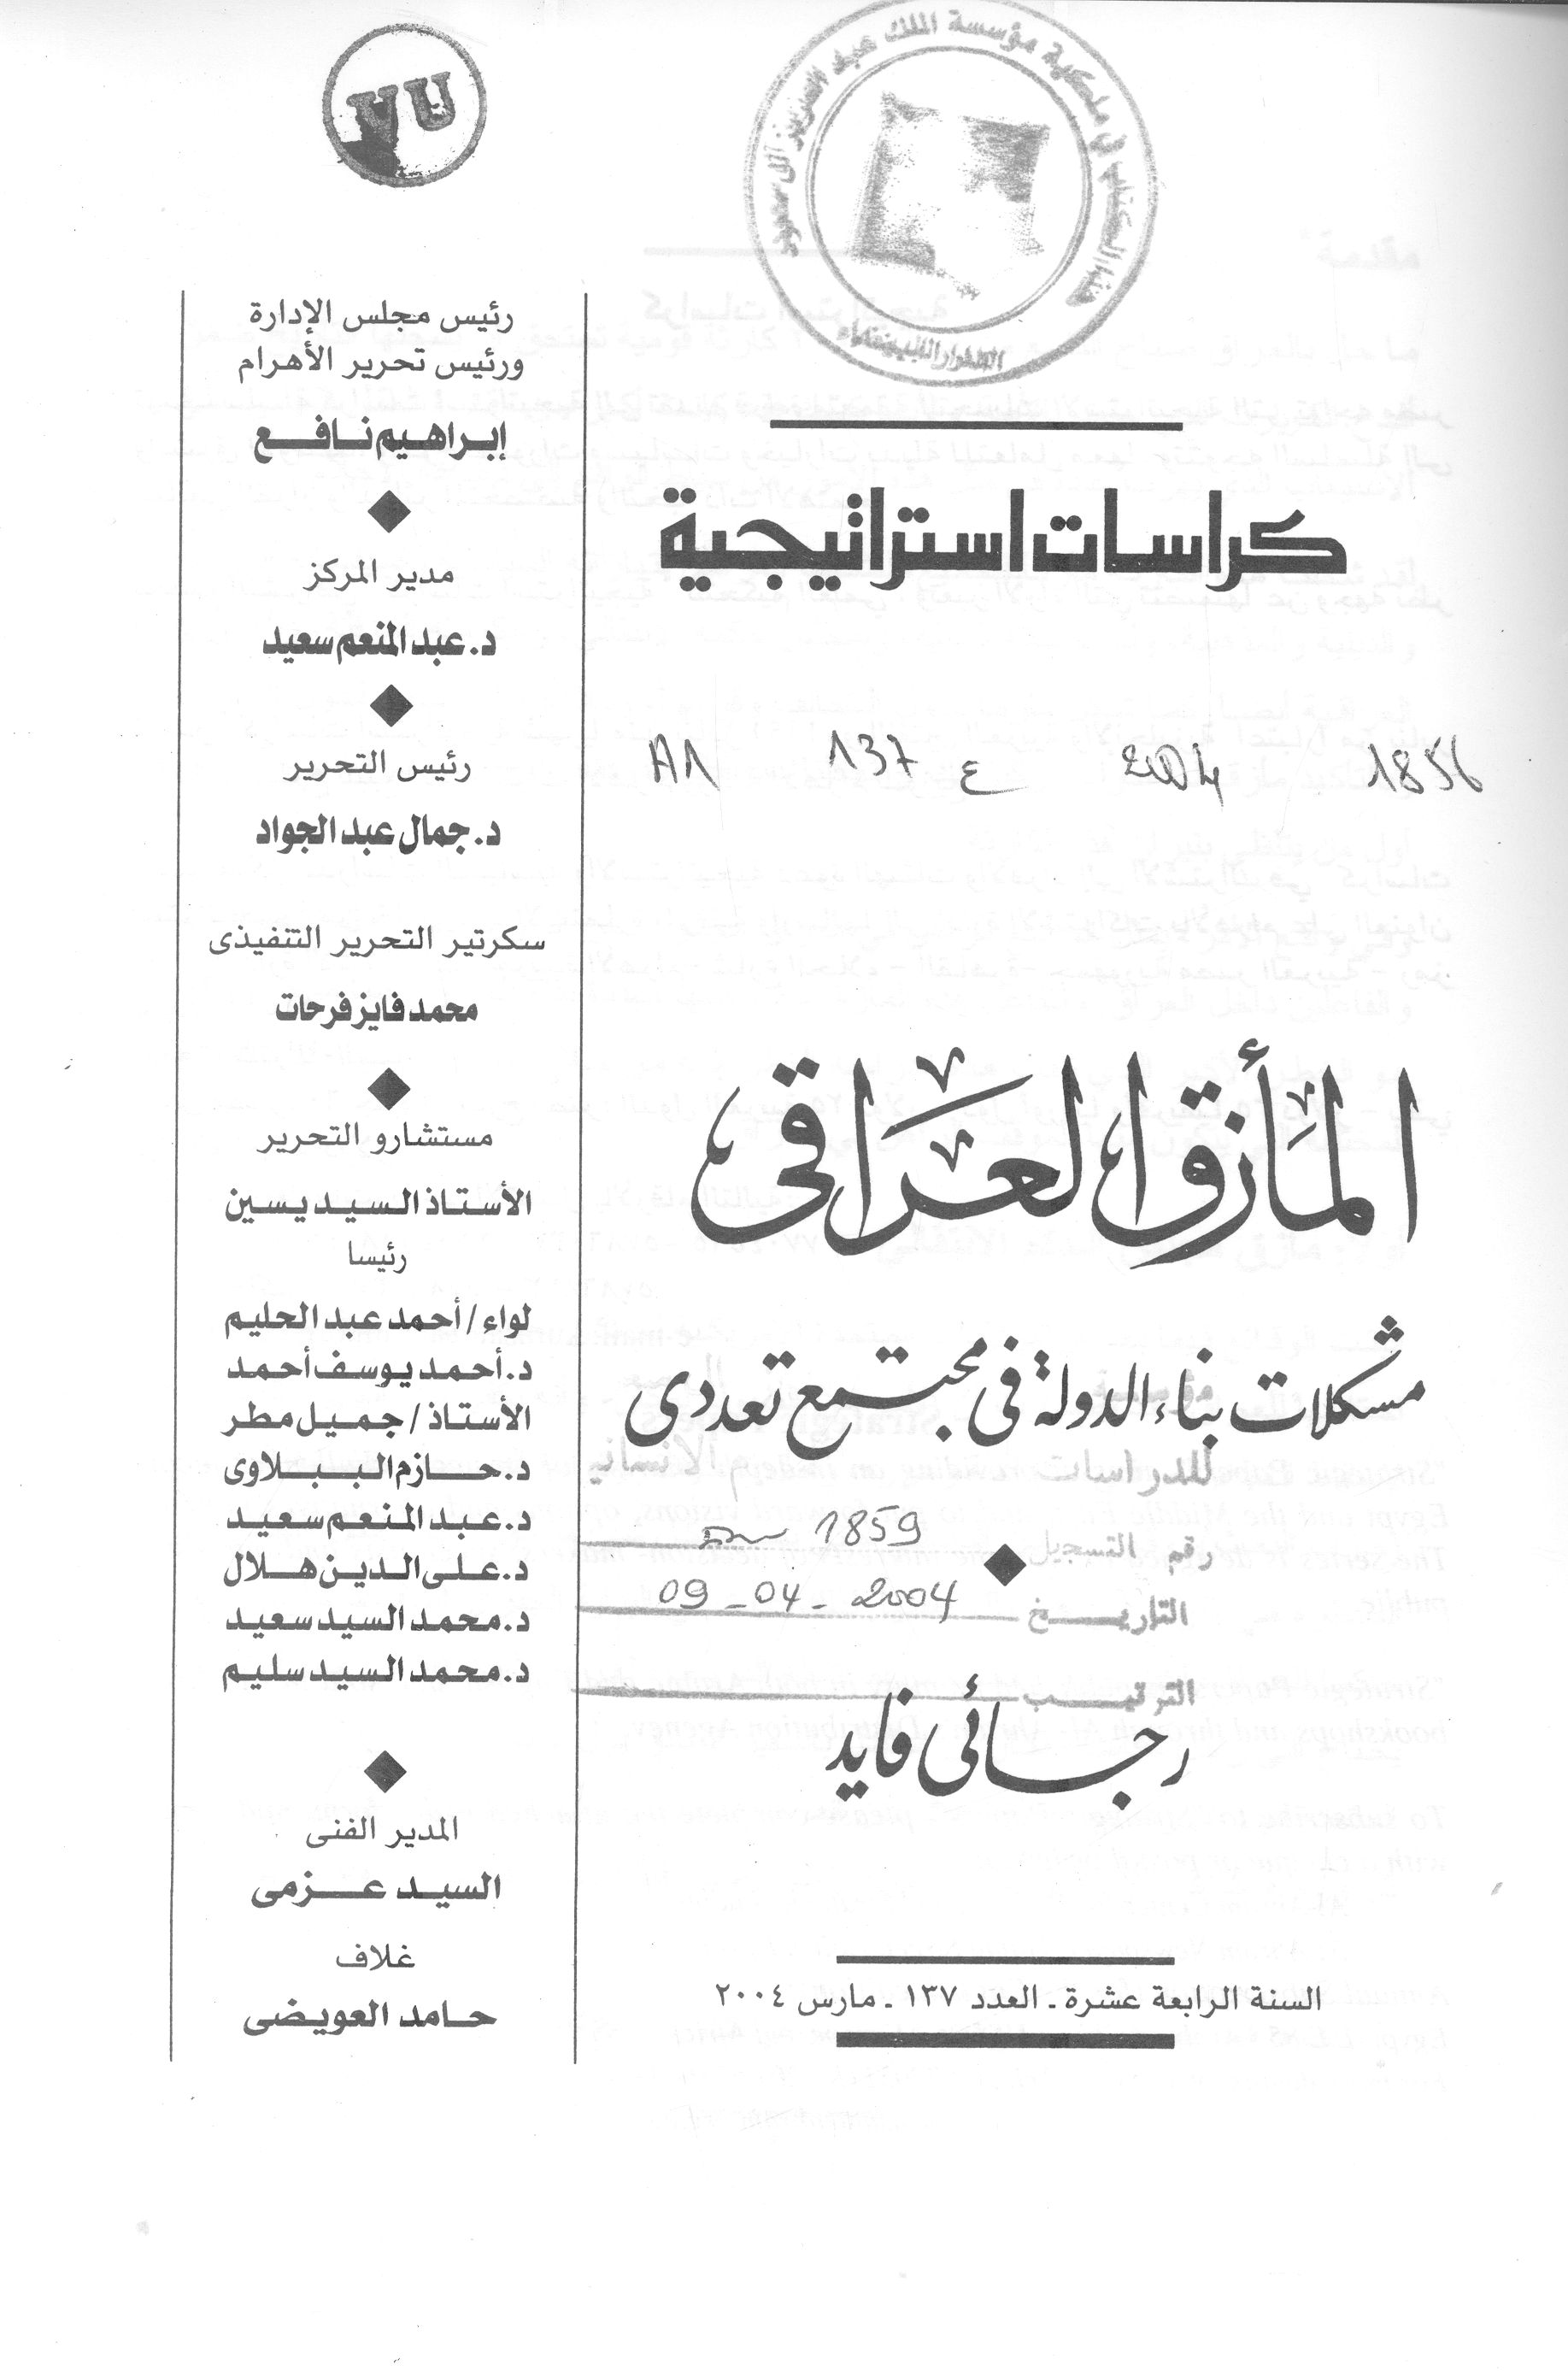 VU
هذا الكتاب في ملكية مؤسسة الملك عبد العزيز آل سعود
الدار البيضاء
كراسات استراتيجية
1856 2004 ع 137 AA
المأزق العراقى
مشكلات بناء الدولة فى مجتمع تعددى
للدراسات
رقم التسجيل 1859
التاريخ 09-04-2004
الترتيب
رجائى فايد
السنة الرابعة عشرة ـ العدد ١٣٧ ـ مارس ٢٠٠٤
رئيس مجلس الإدارة
ورئيس تحرير الأهرام
إبراهيم نافع
مدير المركز
د. عبد المنعم سعيد
رئيس التحرير
د. جمال عبد الجواد
سكرتير التحرير التنفيذى
محمد فايز فرحات
مستشارو التحرير
الأستاذ السيد يسين
رئيسا
لواء / أحمد عبد الحليم
د. أحمد يوسف أحمد
الأستاذ / جميل مطر
د. حازم الببلاوى
د. عبد المنعم سعيد
د. على الدين هلال
د. محمد السيد سعيد
د. محمد السيد سليم
المدير الفنى
السيد عزمى
غلاف
حامد العويضى